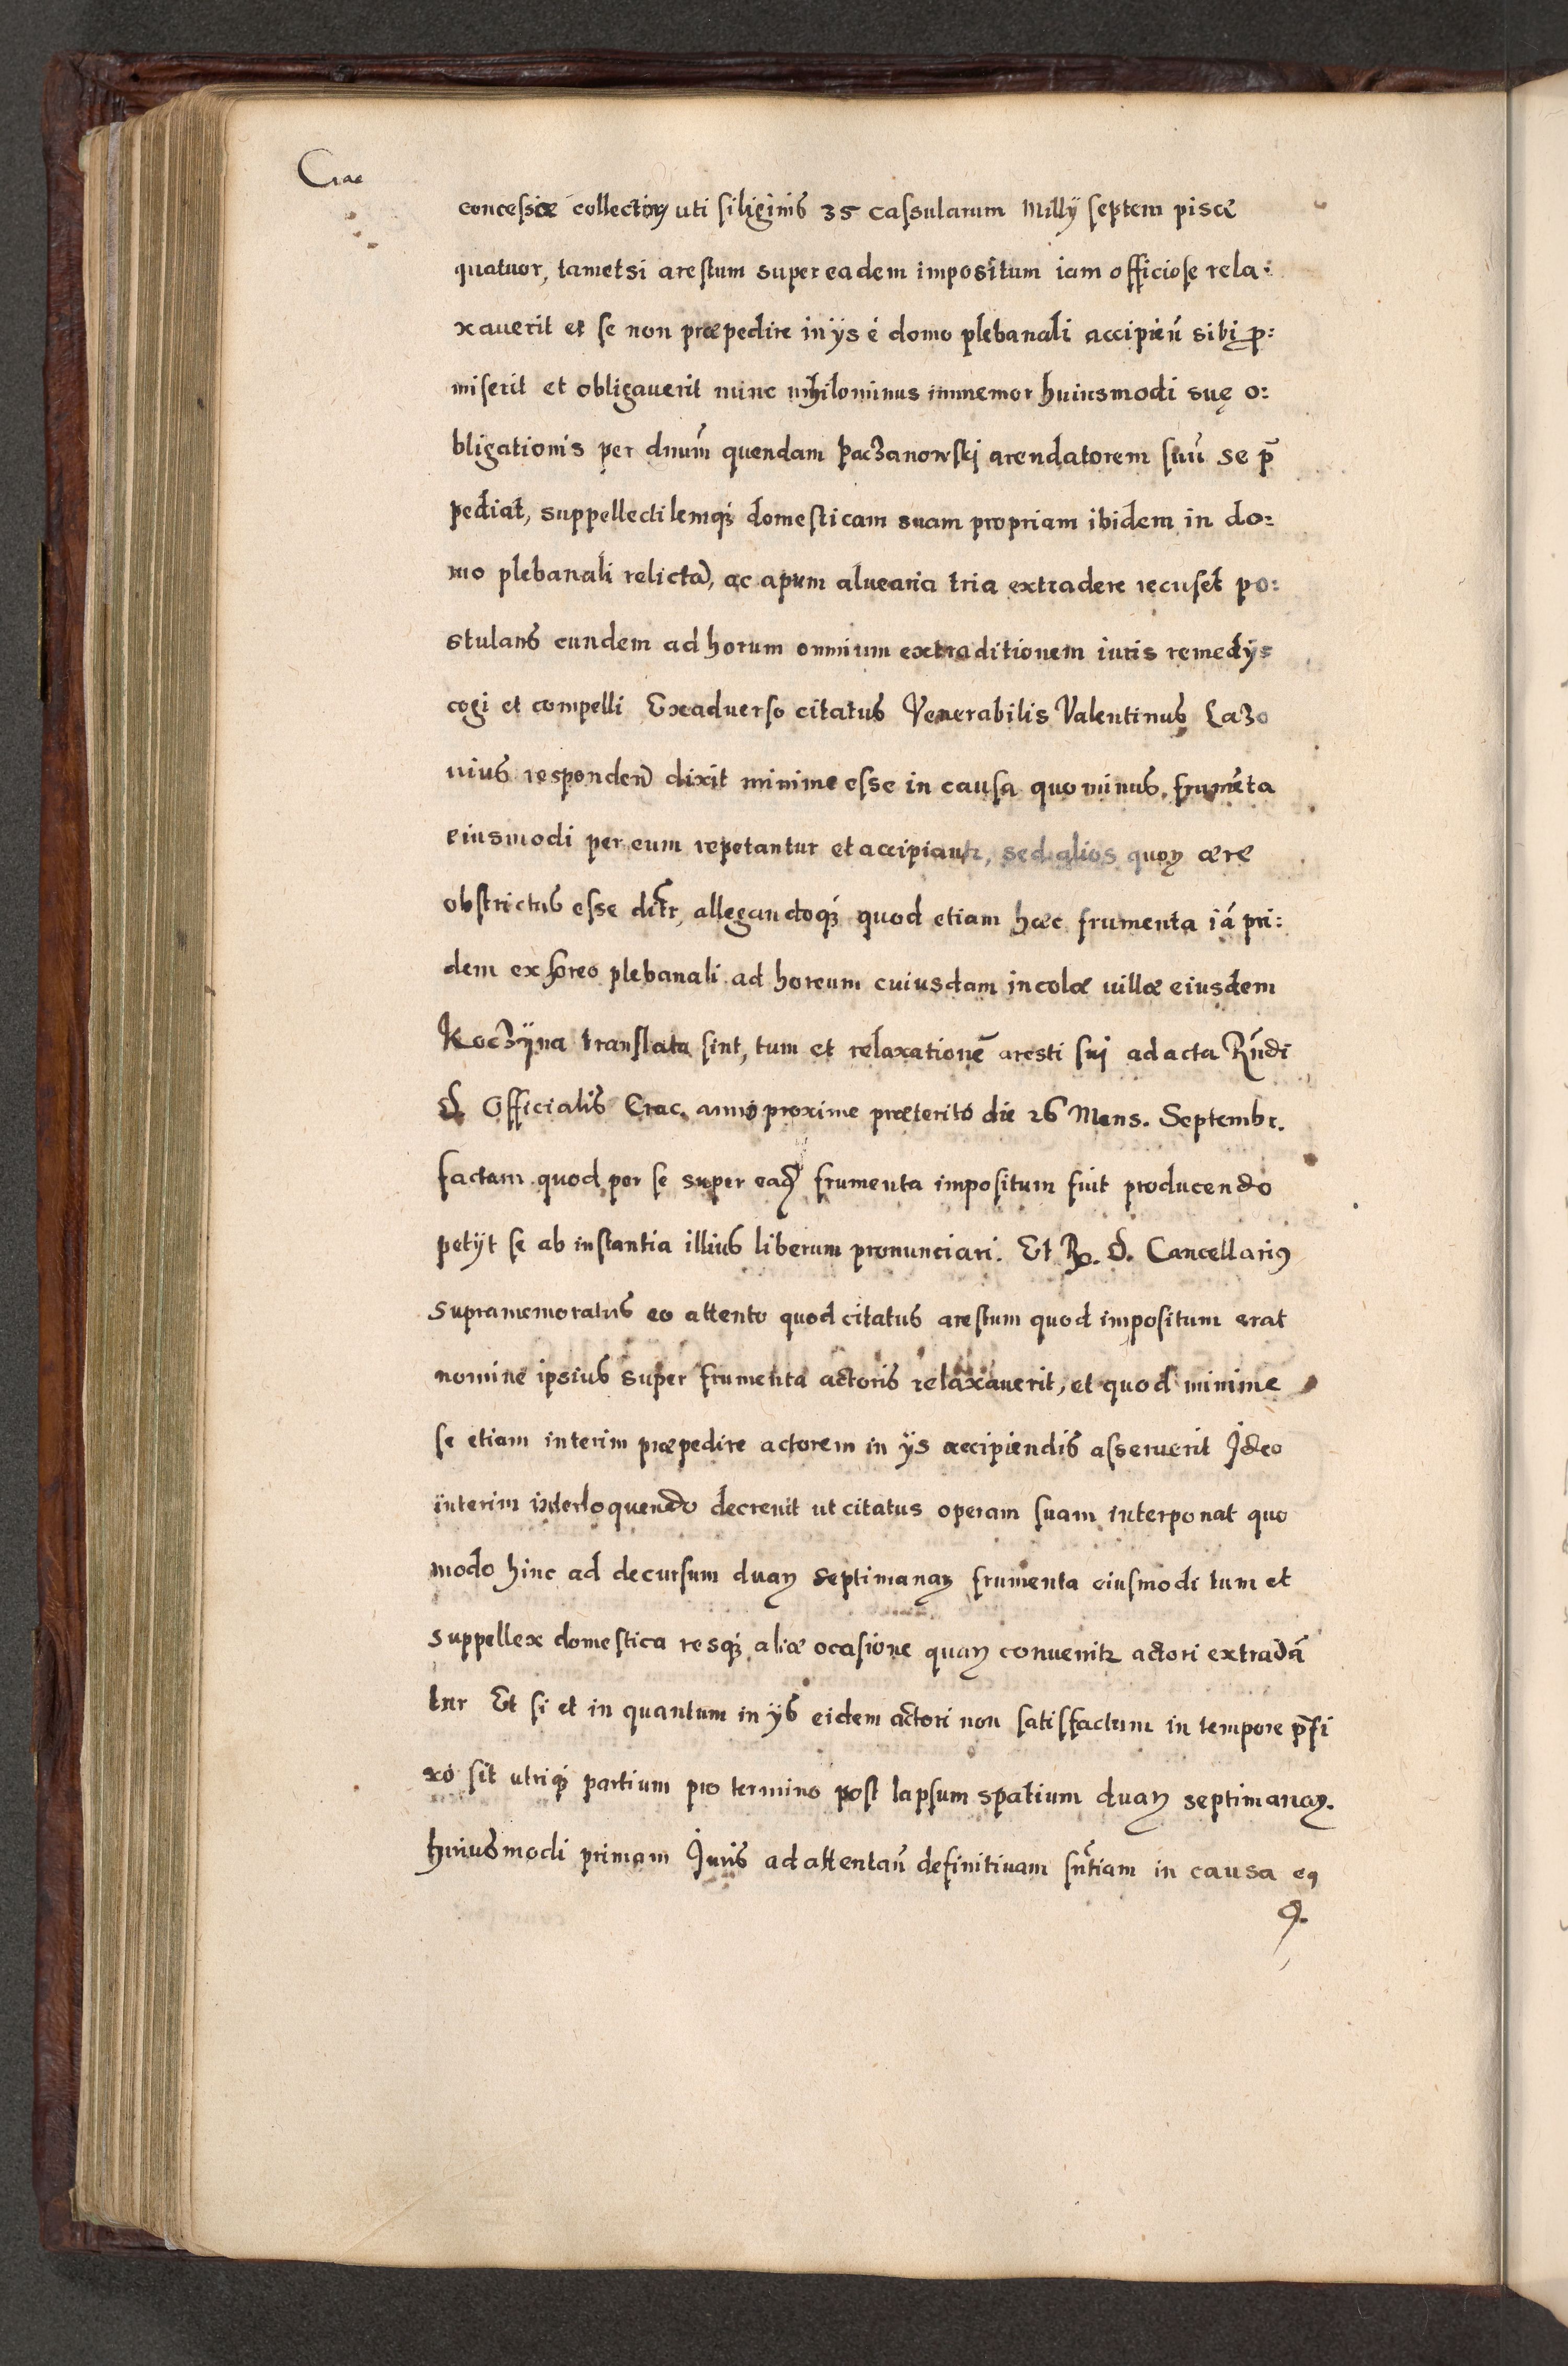 Crac
concessiæ collectorꝝ uti siliginis 35 cassularum Milly septem pisæ
quatuor, tametsi arestum super eadem impositum iam officiose rela:
xauerit et se non præpedire in ijs é domo plebanali accipień sibi ꝓ:
miserit et obligauerit nunc nihilominus immemor huiusmodi suę o:
bligationis per dnum̃ quendam Paczanowskj arendatorem suũ se p̃
pediat, suppellectilemqꝫ domesticam suam propriam ibidem in do:
mo plebanali relictã, ac apum aluearia tria extradere recuset po:
stulans eundem ad horum omnium extraditionem iuris remedijs
cogi et compelli Exaduerso citatus Venerabilis Valentinus Lazo
nius responden̄ dixit minime esse in causa quo minus frumẽta
eiusmodi per eum repetantur et accipiantr, sed alios quoꝝ ære
obstrictus esse dičtr, allegandoqꝫ quod etiam hæc frumenta iã pri:
dem ex horeo plebanali ad horeum cuiusdam incolæ uillæ eiusdem
Koczijna translata sint, tum et relaxationẽ aresti sui ad acta Rńdi
d. Officialis Crac. anno proxime præterito die 26 Mens. Septembr.
factam quod per se super eadꝫ frumenta impositum fuit producendo
petijt se ab instantia illius liberum pronunciari. Et R. d. Cancellariꝰ
supramemoratus eo attento quod citatus arestum quod impositum erat
nomine ipsius super frumenta actoris relaxauerit, et quod minime
se etiam interim præpedire actorem in ijs accipiendis asseruerit Ideo
interim interloquendo decreuit ut citatus operam suam interponat quo
modo hinc ad decursum duaꝝ septimanaꝝ frumenta eiusmodi tum et
suppellex domestica resqꝫ aliæ ocasione quaꝝ convenitr actori extradã
tur Et si et in quantum in ijs eidem actori non satisfactum in tempore p̃fi
xo sit utriqꝫ partium pro termino post lapsum spatium duaꝝ septimanaꝝ.
huiusmodi primam Juris ad attentań definitiuam sńtiam in causa eꝰ